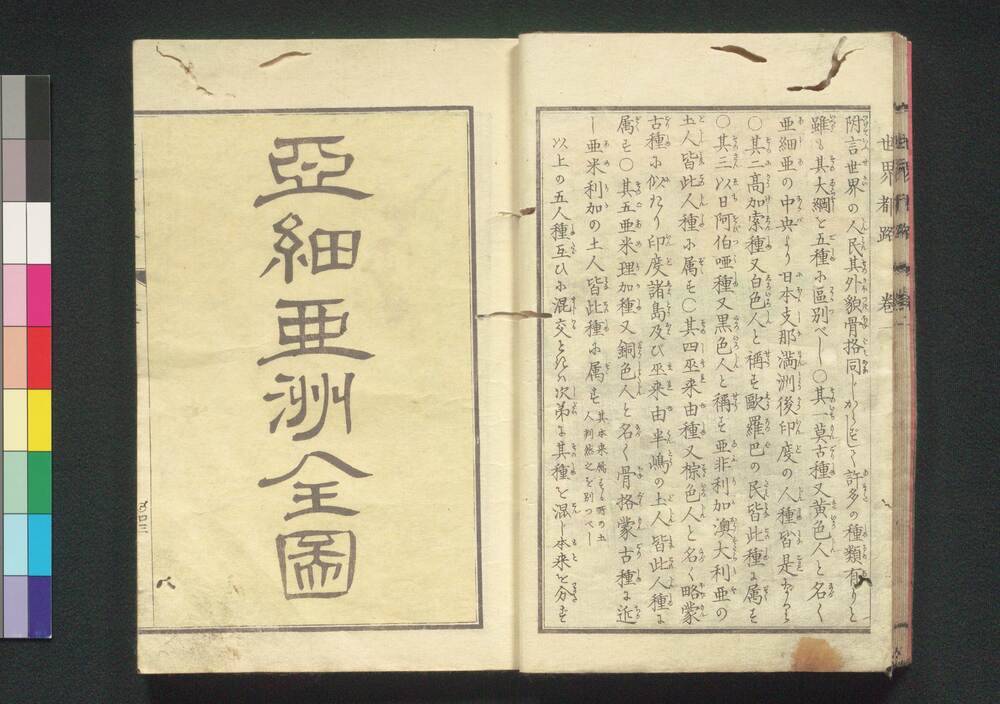 世界都路 卷
附言世界の人民其外貌骨格同じからずして許多の種類有りと
雖も其大綱を五種に區別べし〇其一莫古種又黄色人と名く
亜細亜の中央より日本支那満洲後印度の人種皆是なり
〇其二高加索種又白色人と稱も歐羅巴の民皆此種に属も
〇其三以日阿伯哑種又黒色人と稱も亜非利加澳大利亜の
土人皆此人種に属も〇其四巫来由種又棕色人と名く略蒙
古種に似たり印度諸島及び巫来由半嶋の土人皆此人種に
属も〇其五亜米理加種又銅色人と名く骨格蒙古種に近
し亜米利加の土人皆此種に属も
其本来属する所の土
人判然之を別つべし
以上の五人種互ひに混交
次第に其種を混じ本来を分
亞細亜洲全圖